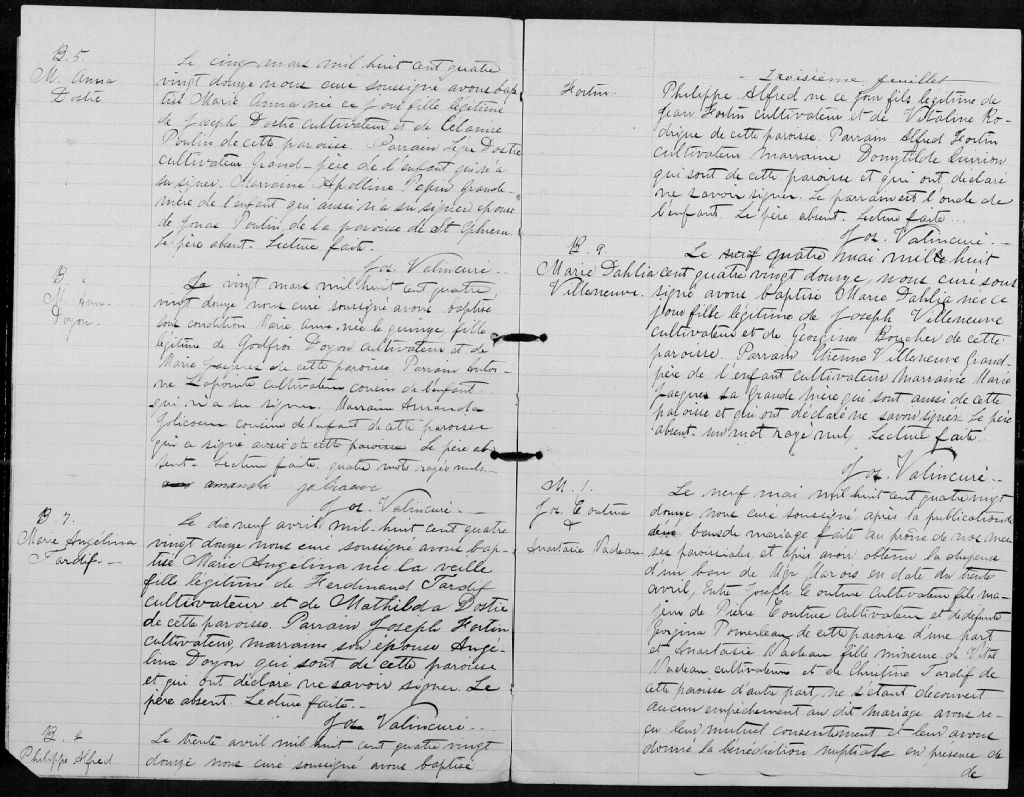 B. 5.
M. Anna
Dostie
Le cinq mars mil huit cent quatre
vingt douze nous curé soussigné avons bap
tisé Marie Anna née ce jour fille légitime
de Joseph Dostie cultivateur et de Célanire
Poulin de cette paroisse. Parrain Dostie
cultivateur Grand-père de l'enfant qui n'a
su signer. Marraine Apolline Pepin grande-
mère de l'enfant qui aussi n'a su signer épouse
de Jonas Poulin de la paroisse de St Ephrem.
Le père absent. Lecture faite.
Jos. Valin curé.
B.
M. Anna
Doyon.
Le vingt mars mil huit cent quatre
vingt douze nous curé soussigné avons baptisé
sous condition Marie Anna née le quinze, fille
légitime de Godfroi Doyon cultivateur et de
Marie Jacques de cette paroisse. Parrain Antoi-
ne Lapointe cultivateur cousin de l'enfant
qui n'a su signer. Marraine Amanda
Jolicoeur cousine de l'enfant de cette paroisse
qui a signé avec de cette paroisse. Le père ab
sent. Lecture faite. quatre mots rayés nuls.
amanda
Jos. Valin curé. --
B. 7.
Marie Angélina
Tardif. --
Le dix neuf avril mil-huit cent quatre
vingt douze nous curé soussigné avons bap-
tisé Marie Angelina née la veille
fille légitime de Ferdinand Tardif
cultivateur et de Mathilda Dostie
de cette paroisse. Parrain Joseph Fortin
cultivateur, marraine son épouse Angé-
lina Doyon qui sont de cette paroisse
et qui ont déclaré ne savoir signer. Le
père absent. Lecture faite. --
Jos. Valin curé. --
B. 8
Philippe Alfred.
Le trente avril mil huit cent quatre vingt
douze nous curé soussigné avons baptisé
- Troisième feuillet
Fortin.
Philippe Alfred né ce jour fils légitime de
Jean Fortin cultivateur et de Vitaline Ro-
drigue de cette paroisse. Parrain Alfred Fortin
cultivateur marraine Domytilde
qui sont de cette paroisse et qui ont déclaré
ne savoir signer. Le parrain est l'oncle de
l'enfant. Le père absent. Lecture faite...
Jos. Valin curé. --
B. 9
Marie Dahlia
Villeneuve.
Le neuf quatre mai mil huit
cent quatre vingt douze, nous curé sous
signé avons baptisé Marie Dahlia née ce
jour fille légitime de Joseph Villeneuve
cultivateur et de Georgina Boucher de cette
paroisse. Parrain Etienne Villeneuve Grand-
père de l'enfant cultivateur marraine Marie
Jacques sa Grande mère qui sont aussi de cette
paroisse et qui ont déclaré ne savoir signer. Le père
absent. un mot rayé nul. Lecture faite.
Jos. Valin curé. --
M. 1.
Jos. Couture
&
Anastasie Nadeau
Le neuf mai mil huit cent quatre vingt
douze nous curé soussigné après la publication de
bans de mariage faite au prône de nos mes
ses paroissiales et après avoir obtenu la dispense
d'un ban de Mgr Marois en date du trente
avril, entre Joseph Couture cultivateur fils ma-
jeur de Pierre Couture cultivateur et de défunte
Georgina Pomerleau de cette paroisse d'une part
et Anastasie Nadeau fille mineure de Vital
Nadeau cultivateur et de Christine Tardif de
cette paroisse d'autre part, ne s'étant découvert
aucun empêchement au dit mariage avons re-
çu leur mutuel consentement et leur avons
donné la bénédiction nuptiale en présence de
de